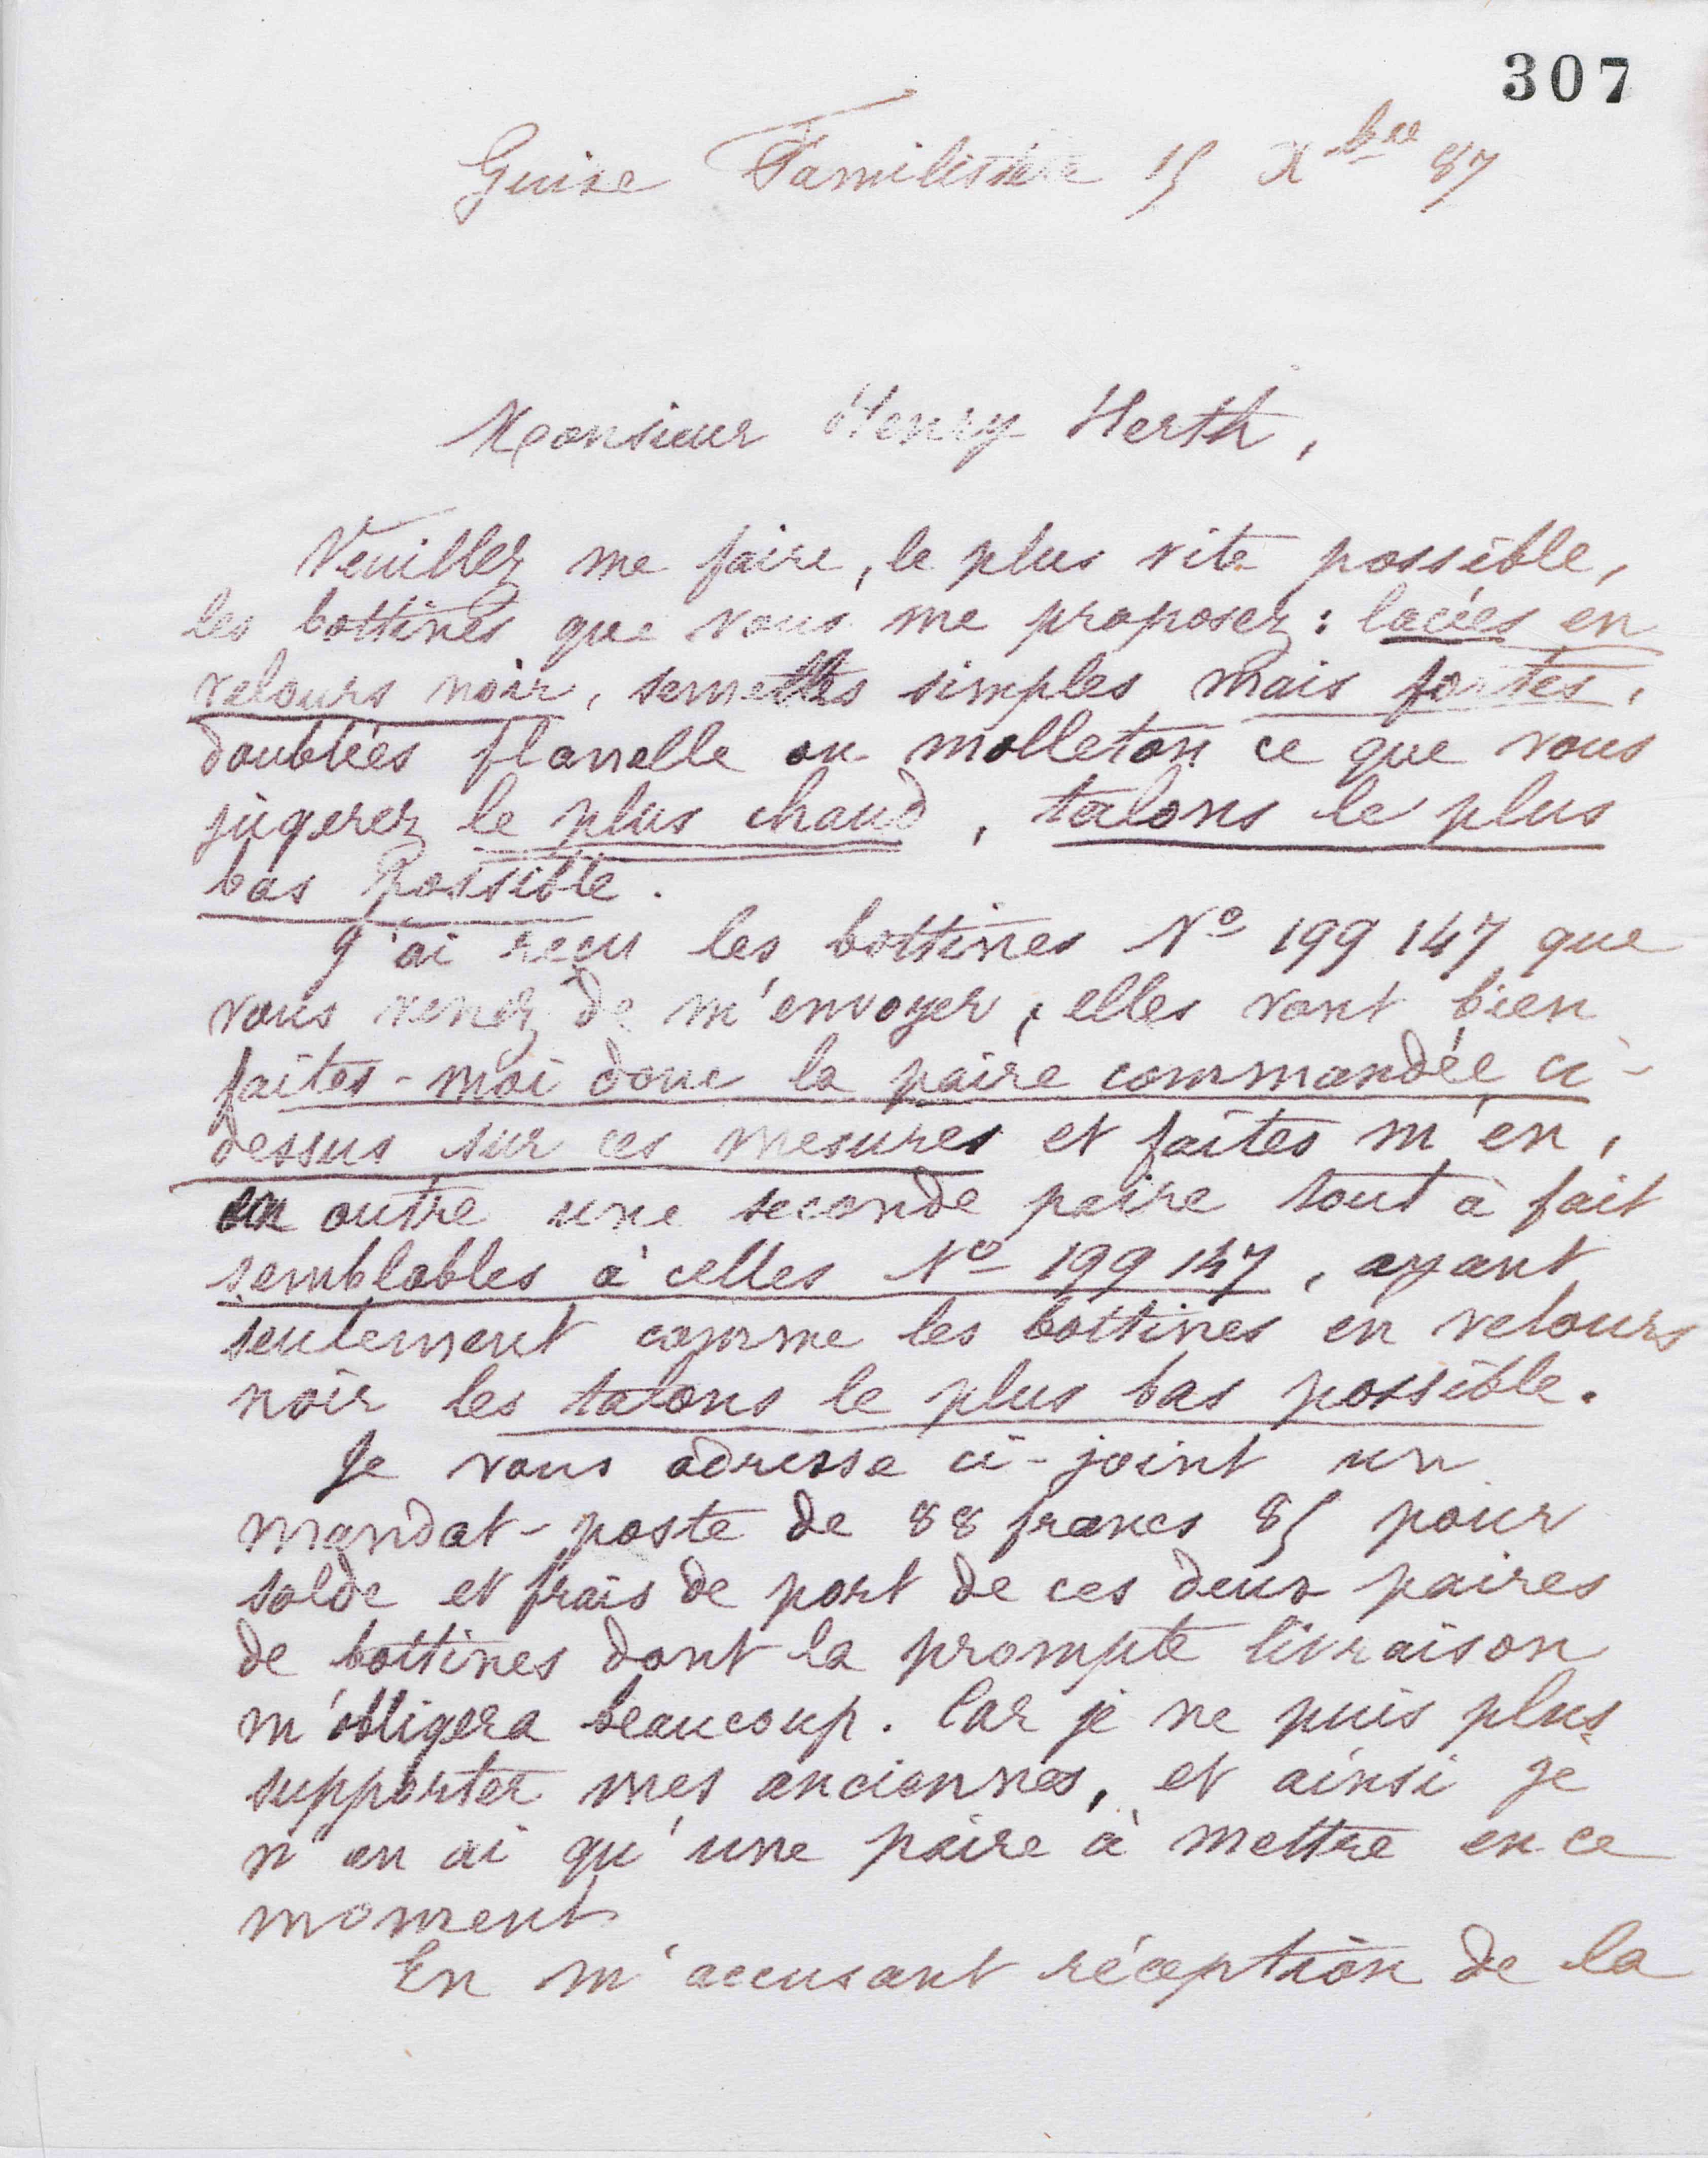 307
Guise Familistère 15 Xbre 87
Monsieur Henry Herth,
Veuillez me faire, le plus vite possible,
les bottines que vous me proposez : lacées en
velours noir, semelles simples mais fortes,
doublées flanelle ou molleton ce que vous
jugerez le plus chaud, talons le plus
bas possible.
J'ai reçu les bottines No 199 147 que
vous venez de m'envoyer, elles vont bien
faites-moi donc la paire commandée ci-
dessus sur ces mesures et faites m'en,
en outre une seconde paire tout à fait
semblables à celles No 199 147, ayant
seulement comme les bottines en velours
noir les talons le plus bas possible.
Je vous adresse ci-joint un
mandat-poste de 88 francs 85 pour
solde et frais de port de ces deux paires
de bottines dont la prompte livraison
m'obligera beaucoup. Car je ne puis plus
supporter mes anciennes, et ainsi je
n'en ai qu'une paire à mettre en ce
moment
En m'accusant réception de la